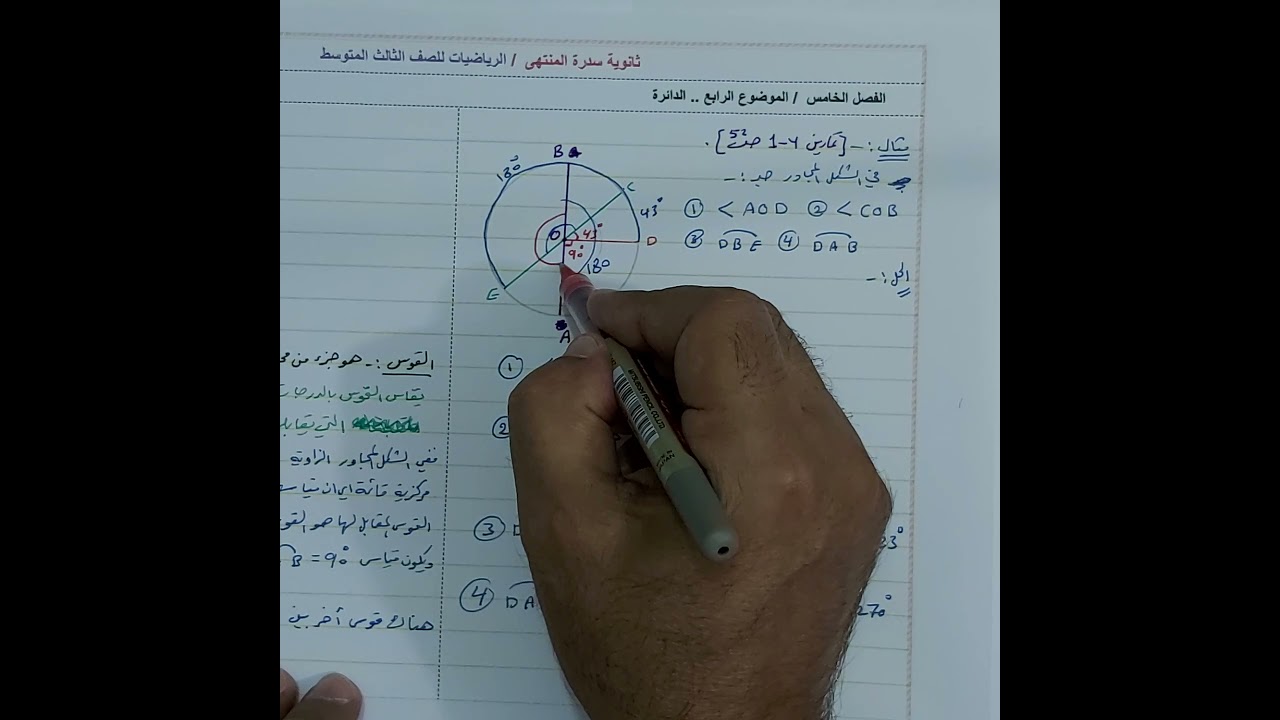 ثانوية سدرة المنتهى / الرياضيات للصف الثالث المتوسط
الفصل الخامس / الموضوع الرابع .. الدائرة
مثال :- [تمارين 4-1 صـ 52].
في الشكل المجاور جد :-
① < AOD ② < COB
③ DBE ④ DAB
الحل :-
B
130°
C
43°
O 43°
D
90°
130
E
A
①
②
③ D 23°
④ DA 270°
القوس :- هو جزء من
يقاس القوس بالدرجات
التي تقابل
ففي الشكل المجاور الزاوية
مركزية قائمة اي ان قياس
القوس المقابل لها هو القوس
ويكون قياس B = 90°
هناك قوس أخر بين